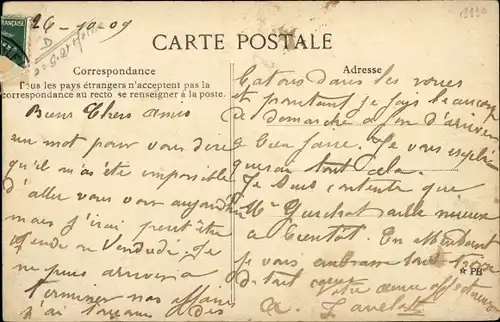 26-10-09
1910
FRANÇAISE
CARTE POSTALE
Correspondance
Tous les pays étrangers n'acceptent pas la
correspondance au recto se renseigner à la poste.
Biens Chers amis
un mot pour vous dire
qu'il m'a été impossible
d'aller vous voir aujourd'hui
mais j'irai peut être
ou Vendredi, Je
ne puis arriver a
terminer nos affaires
j'ai toujours des
Adresse
Batons dans les roues
et pourtant je fais beaucoup
de demarche afin d'arriver
a bien faire. Je vous expliquerai tout cela.
Je suis contente que
Mr aille mieux
a Bientôt. En attendant
je vous embrasse tous
de tout coeur
votre amie affectionnée
A.
★ PH